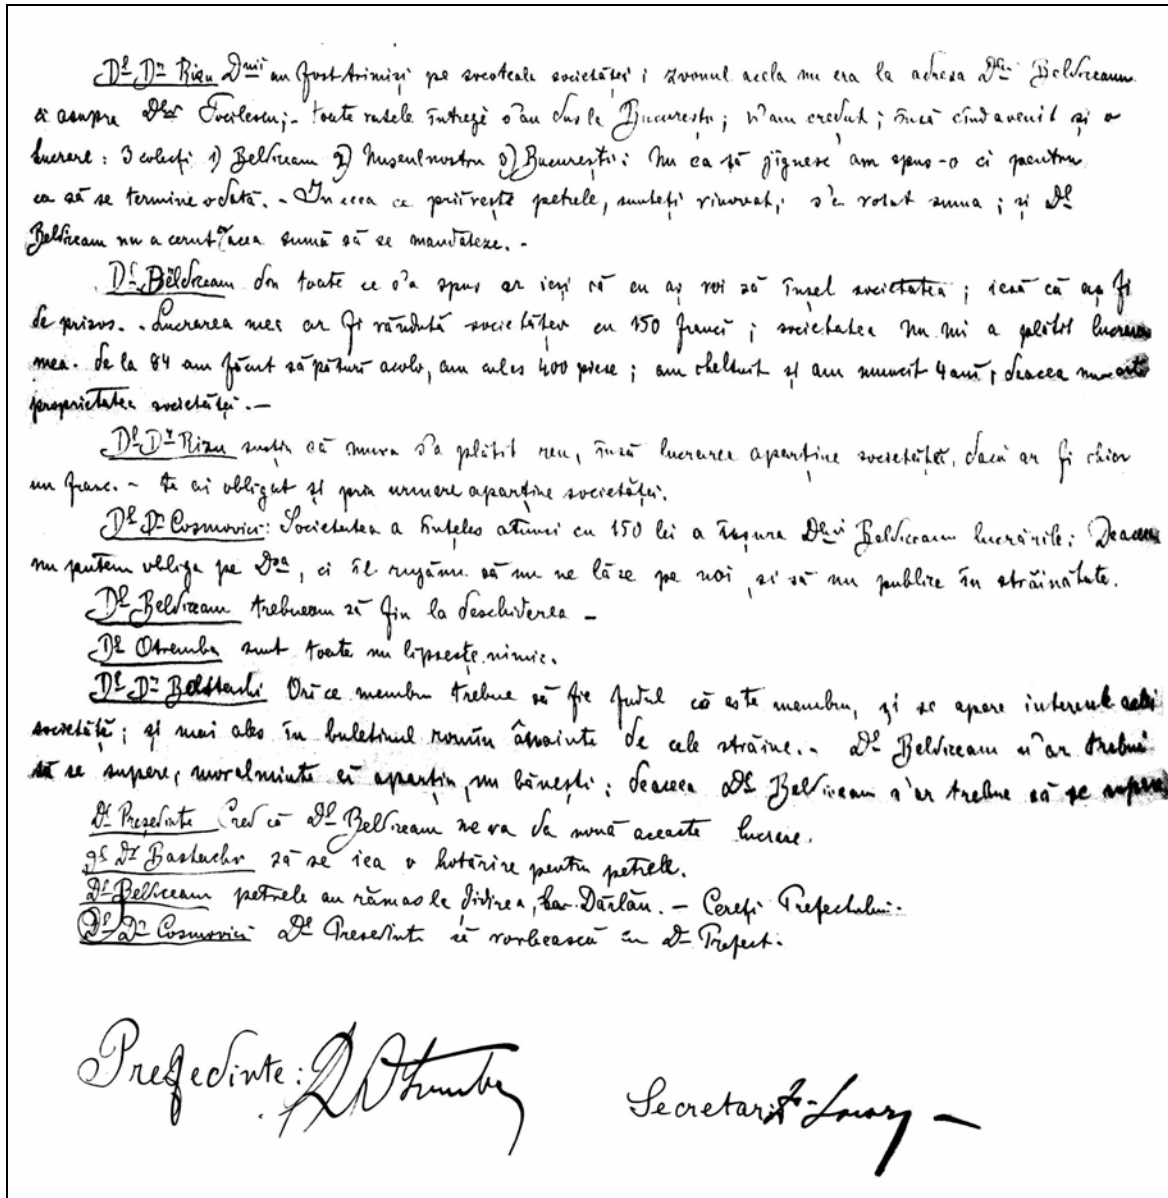 Dl Dr Rizu Dnii au fost trimiși pe socoteala societăței; zvonul acela nu era la adresa Dlui Beldiceanu
ci asupra Dlui Tocilescu; - toate vasele întregi s'au dus la București; n'am crezut; însă cînd a venit și o
lucrare: 3 colecți 1) Beldiceanu 2) Museul nostru 3) București: Nu ca să jignesc am spus-o ci pentru
ca să se termine odată. - In ceea ce privește petrele, sunteți vinovat; s'a votat suma; și Dl
Beldiceanu nu a cerut ca acea sumă să se mandateze. -
Dl Beldiceanu din toate ce s'a spus ar ieși că eu aș voi să înșel societatea; iesă că aș fi
de prisos. - Lucrarea mea ar fi vândută societăței cu 150 franci; societatea nu mi a plătit lucrarea
mea. de la 84 am făcut săpături acolo, am cules 400 piese; am cheltuit și am muncit 4 ani; deacea nu este
proprietatea societăței. -
Dl Dr Rizu susțin că munca s'a plătit reu, însă lucrarea aparține societăței, dacă ar fi chiar
un franc. - te ai obligat și prin urmare aparține societăței.
Dl Dr Cosmovici: Societatea a înțeles atunci cu 150 lei a ușura Dlui Beldiceanu lucrările; Deaceea
nu putem obliga pe Dsa, ci îl rugăm să nu ne lăze pe noi, și să nu publice în străinătate.
Dl Beldiceanu trebueam să fiu la deschiderea -
Dl Otremba sunt toate nu lipsește nimic.
Dl Dr Ori ce membru trebue să fie fudul că este membru, și se apere interesul
societăță; și mai ales în buletinul romîn înainte de cele străine. - Dl Beldiceanu n'ar trebui
să se supere, moralminte ei aparțin, nu bănești; deaceea Dl Beldiceanu n'ar trebue să se supere
Dl Președinte Cred că Dl Beldiceanu ne va da nouă aceaste lucrare.
Dl Dr Bastachi să se iea o hotărire pentru petrele.
Dl Beldiceanu petrele au rămas la Dârlău. - Cereți Prefectului.
Dl Dr Cosmovici Dl Presedinte să vorbească cu Dl Prefect.
Președinte: Otremba
Secretar: